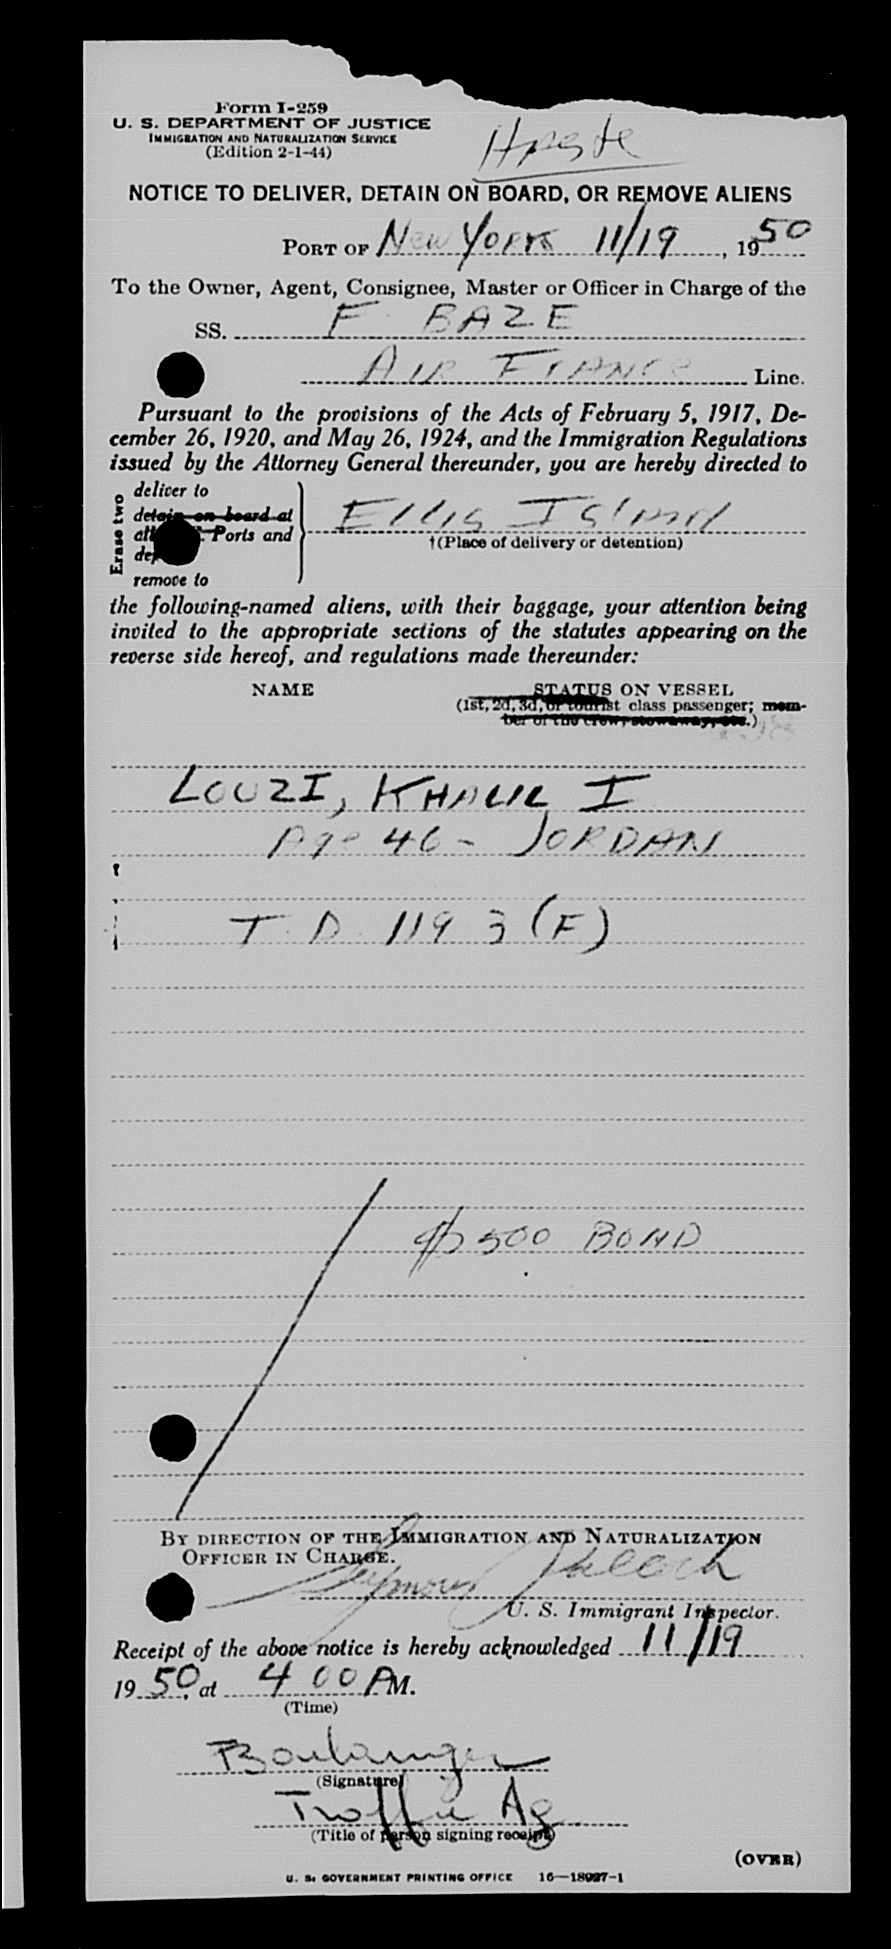 Form I-259
U. S. DEPARTMENT OF JUSTICE
IMMIGRATION AND NATURALIZATION SERVICE
(Edition 2-1-44)
NOTICE TO DELIVER, DETAIN ON BOARD, OR REMOVE ALIENS
PORT OF New York 11/19, 1950
To the Owner, Agent, Consignee, Master or Officer in Charge of the
SS. F. BAZE
AIR FRANCE Line.
Pursuant to the provisions of the Acts of February 5, 1917, De-
cember 26, 1920, and May 26, 1924, and the Immigration Regulations
issued by the Attorney General thereunder, you are hereby directed to
Erase two
deliver to
detain on board at
Ports and
remove to
Ellis Island
†(Place of delivery or detention)
the following-named aliens, with their baggage, your attention being
invited to the appropriate sections of the statutes appearing on the
reverse side hereof, and regulations made thereunder:
NAME STATUS ON VESSEL
(1st, 2d, 3d, or tourist class passenger; mem-
ber of the crew, stowaway, etc.)
LOUZI, KHALIL I
Age 46 - JORDAN
T. D. 1193 (F)
$500 BOND
BY DIRECTION OF THE IMMIGRATION AND NATURALIZATION
OFFICER IN CHARGE.
Seymour
U. S. Immigrant Inspector.
Receipt of the above notice is hereby acknowledged 11/19
1950, at 4 00 PM.
(Time)
Boulanger
(Signature)
Traffic Ag
(Title of person signing receipt)
(OVER)
U. S. GOVERNMENT PRINTING OFFICE 16—18927-1